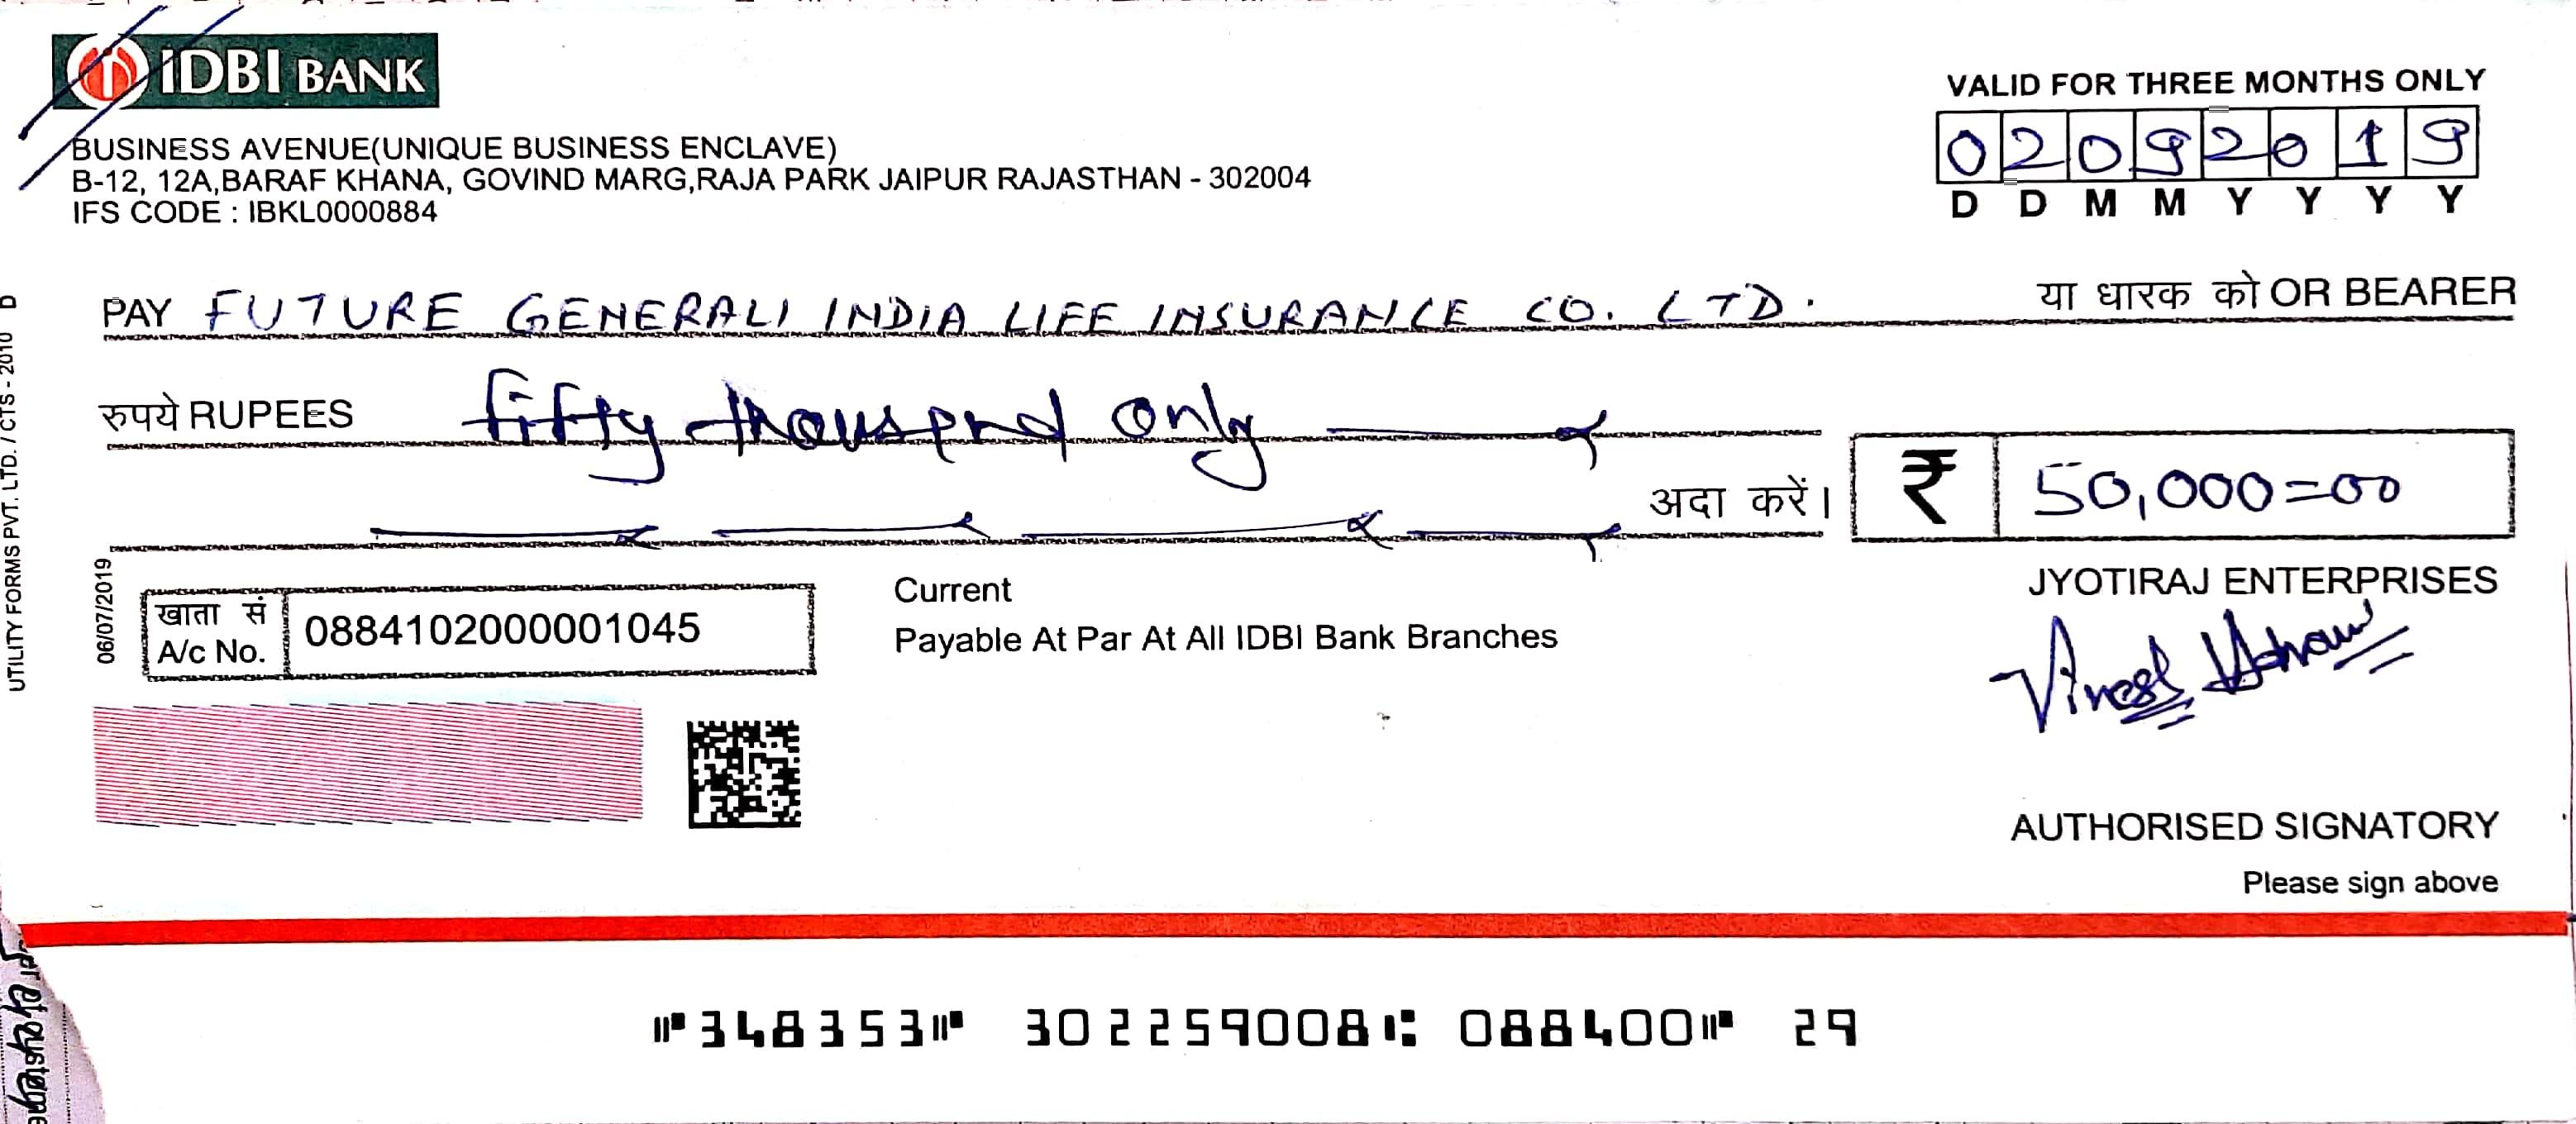 IDBI BANK
BUSINESS AVENUE(UNIQUE BUSINESS ENCLAVE)
B-12, 12A,BARAF KHANA, GOVIND MARG,RAJA PARK JAIPUR RAJASTHAN - 302004
IFS CODE : IBKL0000884
VALID FOR THREE MONTHS ONLY
0 2 0 9 2 0 1 9
D D M M Y Y Y Y
PAY FUTURE GENERALI INDIA LIFE INSURANCE CO. LTD. या धारक को OR BEARER
रुपये RUPEES fifty thousand only
अदा करें। ₹ 50,000=00
UTILITY FORMS PVT. LTD. / CTS - 2010 D
06/07/2019
खाता सं
A/c No. 0884102000001045
Current
Payable At Par At All IDBI Bank Branches
JYOTIRAJ ENTERPRISES
AUTHORISED SIGNATORY
Please sign above
⑈348353⑈ 302259008⑆ 088400⑈ 29